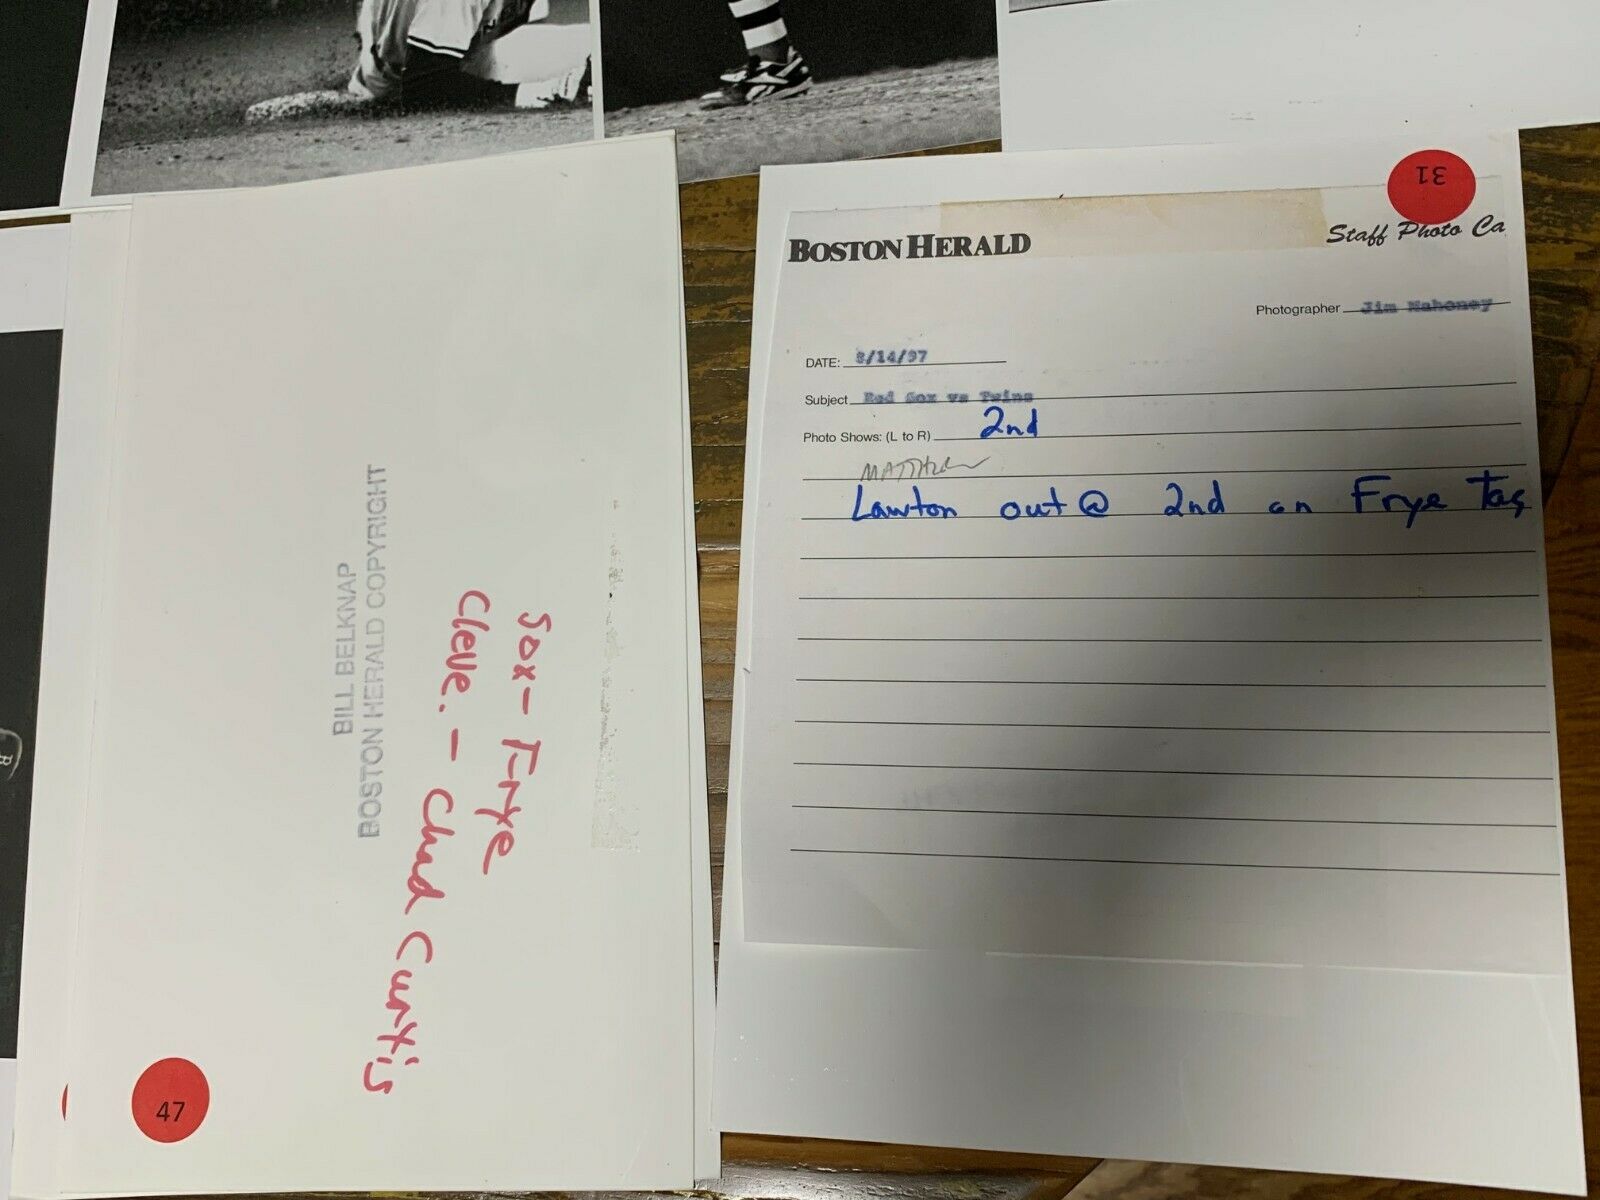 BILL BELKNAP
BOSTON HERALD COPYRIGHT
Sox - Frye
Cleve. - Chad Curtis
47
31
BOSTON HERALD
Staff Photo Ca
Photographer Jim Mahoney
DATE: 8/14/97
Subject Red Sox vs Twins
Photo Shows: (L to R) 2nd
MATTHEW
Lawton out @ 2nd on Frye Tag
B